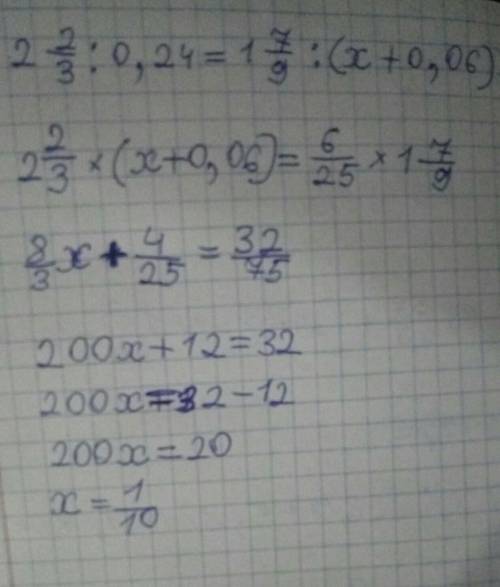 2 2/3 : 0,24 = 1 7/9 : (x + 0,06)
2 2/3 × (x + 0,06) = 6/25 × 1 7/9
8/3 x + 4/25 = 32/75
200x + 12 = 32
200x = 32 - 12
200x = 20
x = 1/10